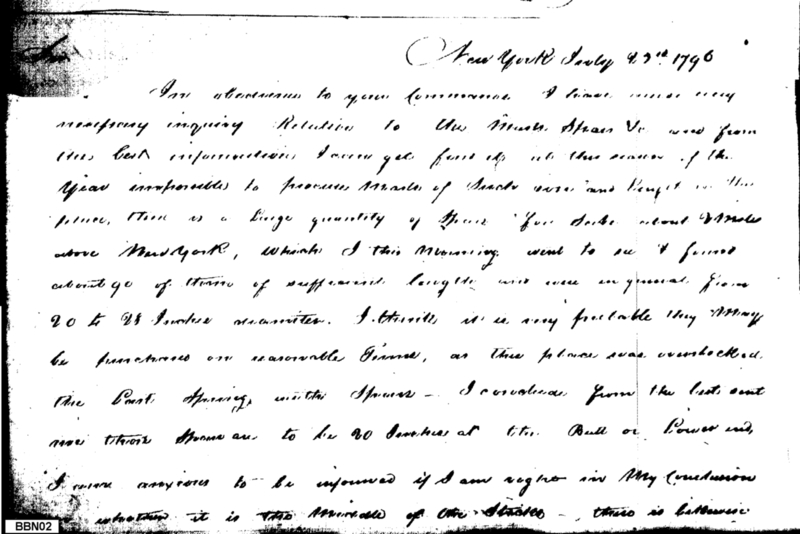 Sir
New York July 23rd 1796
In obedience to your Command I have made every
necessary inquiry Relative to the Masts Spars &c and from
the best information I can get find it at this season of the
Year impossible to procure Masts of Such size and length in this
place, there is a large quantity of Spars for Sale about Miles
above New York, which I this Morning went to see & found
about 90 of them of sufficient length and were in general from
20 to 23 Inches diameter. I think it is very probable they May
be purchased on reasonable Terms, as this place was overstocked
the Past Spring with Spars - I conclude from the list sent
me those Spars are to be 20 Inches at the Butt or Lower end,
I am anxious to be informed if I am right in My Conclusion
or whether it is the Middle of the - there is likewise
BBN02